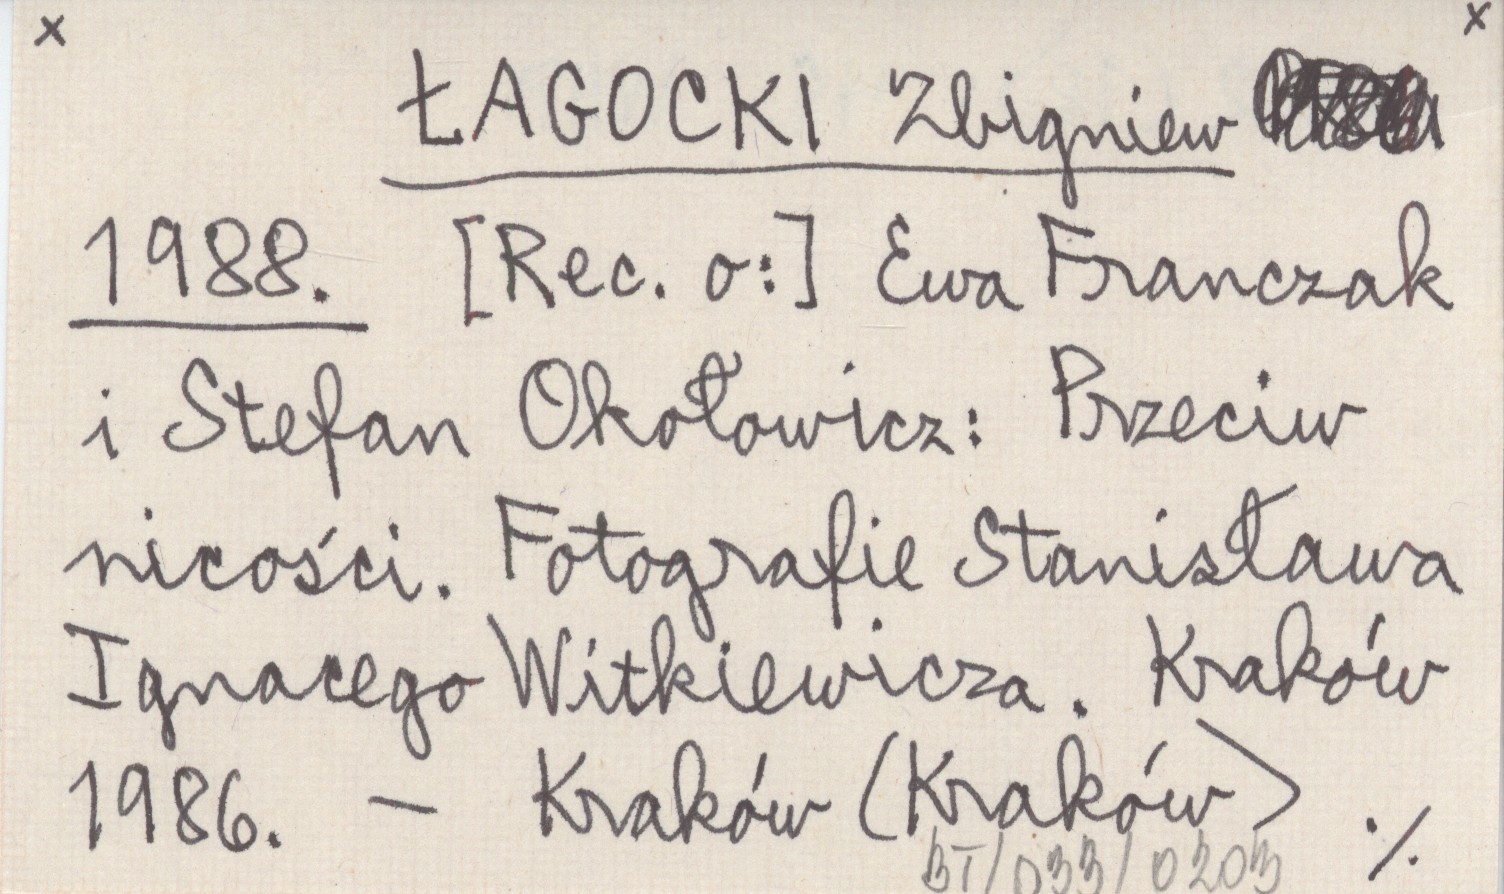 x x
ŁAGOCKI Zbigniew
1988. [Rec. o:] Ewa Franczak
i Stefan Okołowicz: Przeciw
nicości. Fotografie Stanisława
Ignacego Witkiewicza. Kraków
1986. — Kraków (Kraków) ./.
BT/033/0203